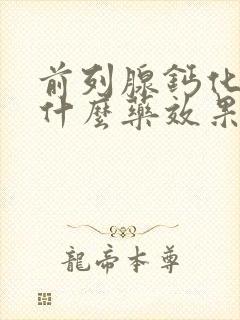 前列腺鈣化
什麼藥效果
龍帝本尊